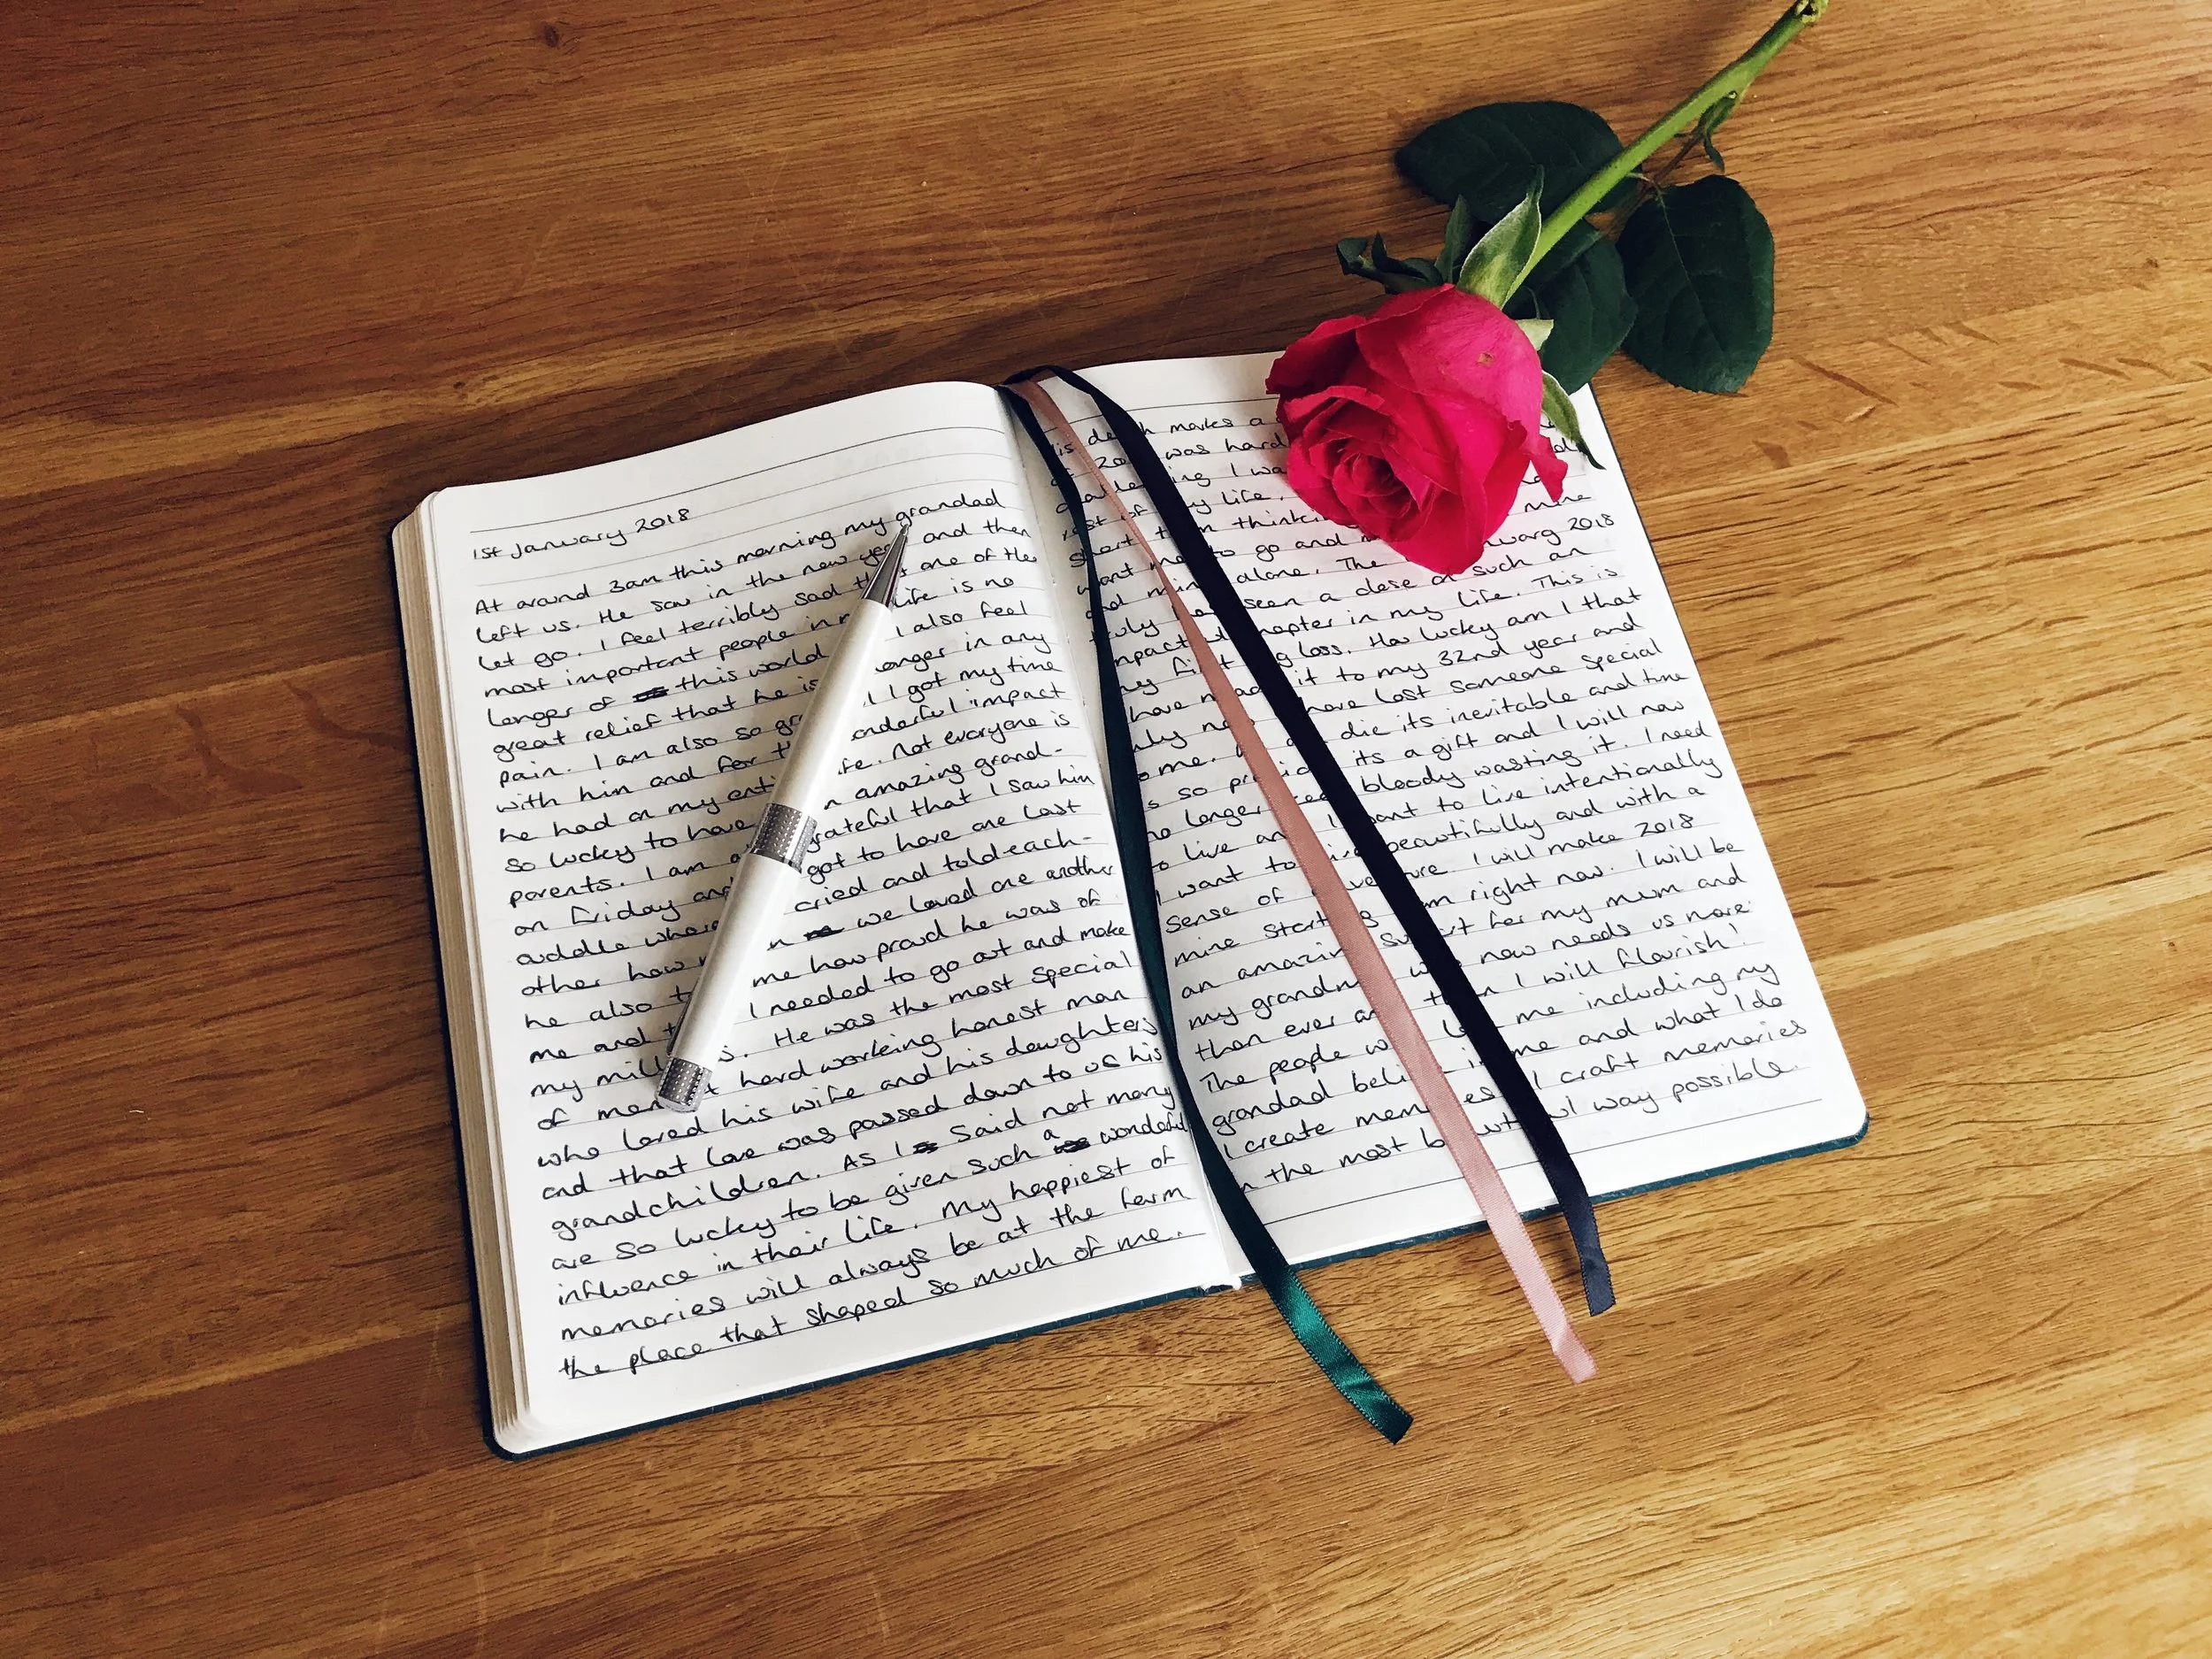 1st January 2018
At around 3am this morning my grandad
left us. He saw in the new year and then
let go. I feel terribly sad that one of the
most important people in life is no
longer of this world I also feel
great relief that he is longer in any
pain. I am also so I got my time
with him and for wonderful impact
he had on my life. Not everyone is
so lucky to have an amazing grand-
parents. I am grateful that I saw him
on Friday and got to have one last
cuddle where cried and told each-
other how we loved one another
he also me how proud he was of
me and I needed to go out and make
my He was the most special
of men. hard working honest man
who loved his wife and his daughters
and that love was passed down to us his
grandchildren. As I said not many
are so lucky to be given such a wonderful
influence in their life. My happiest of
memories will always be at the farm
the place that shaped so much of me.
death makes a
was hard
I
of my life.
short thinking mine
want me to go and 2018
and mine alone. The
truly seen a close of such an
chapter in my life. This is
my first big loss. How lucky am I that
have made it to my 32nd year and
only now have lost someone special
die its inevitable and time
is so its a gift and I will now
no longer bloody wasting it. I need
to live and I want to live intentionally
I want to beautifully and with a
sense of adventure I will make 2018
mine starting from right now. I will be
an amazing support for my mum and
my grandma who now needs us more
than ever and then I will flourish!
The people who me including my
grandad believe in me and what I do
I create memories I craft memories
in the most beautiful way possible.